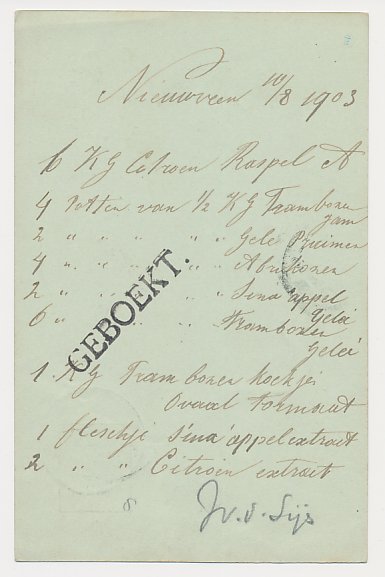 Nieuwveen 10/8 1903
6 KG Citroen Raspel A
4 Potten van 1/2 KG Frambozen Jam
2 " " " " " Gele Pruimen
4 " " " " " Abrikozen
2 " " " " " Sina appel Gelei
6 " " " " Frambozen Gelei
GEBOEKT.
1 KG Frambozen koekjes
Ovaal Formaat
1 fleschje Sina'appel extrait
2 " " Citroen extrait
J v. d. Sijs
8